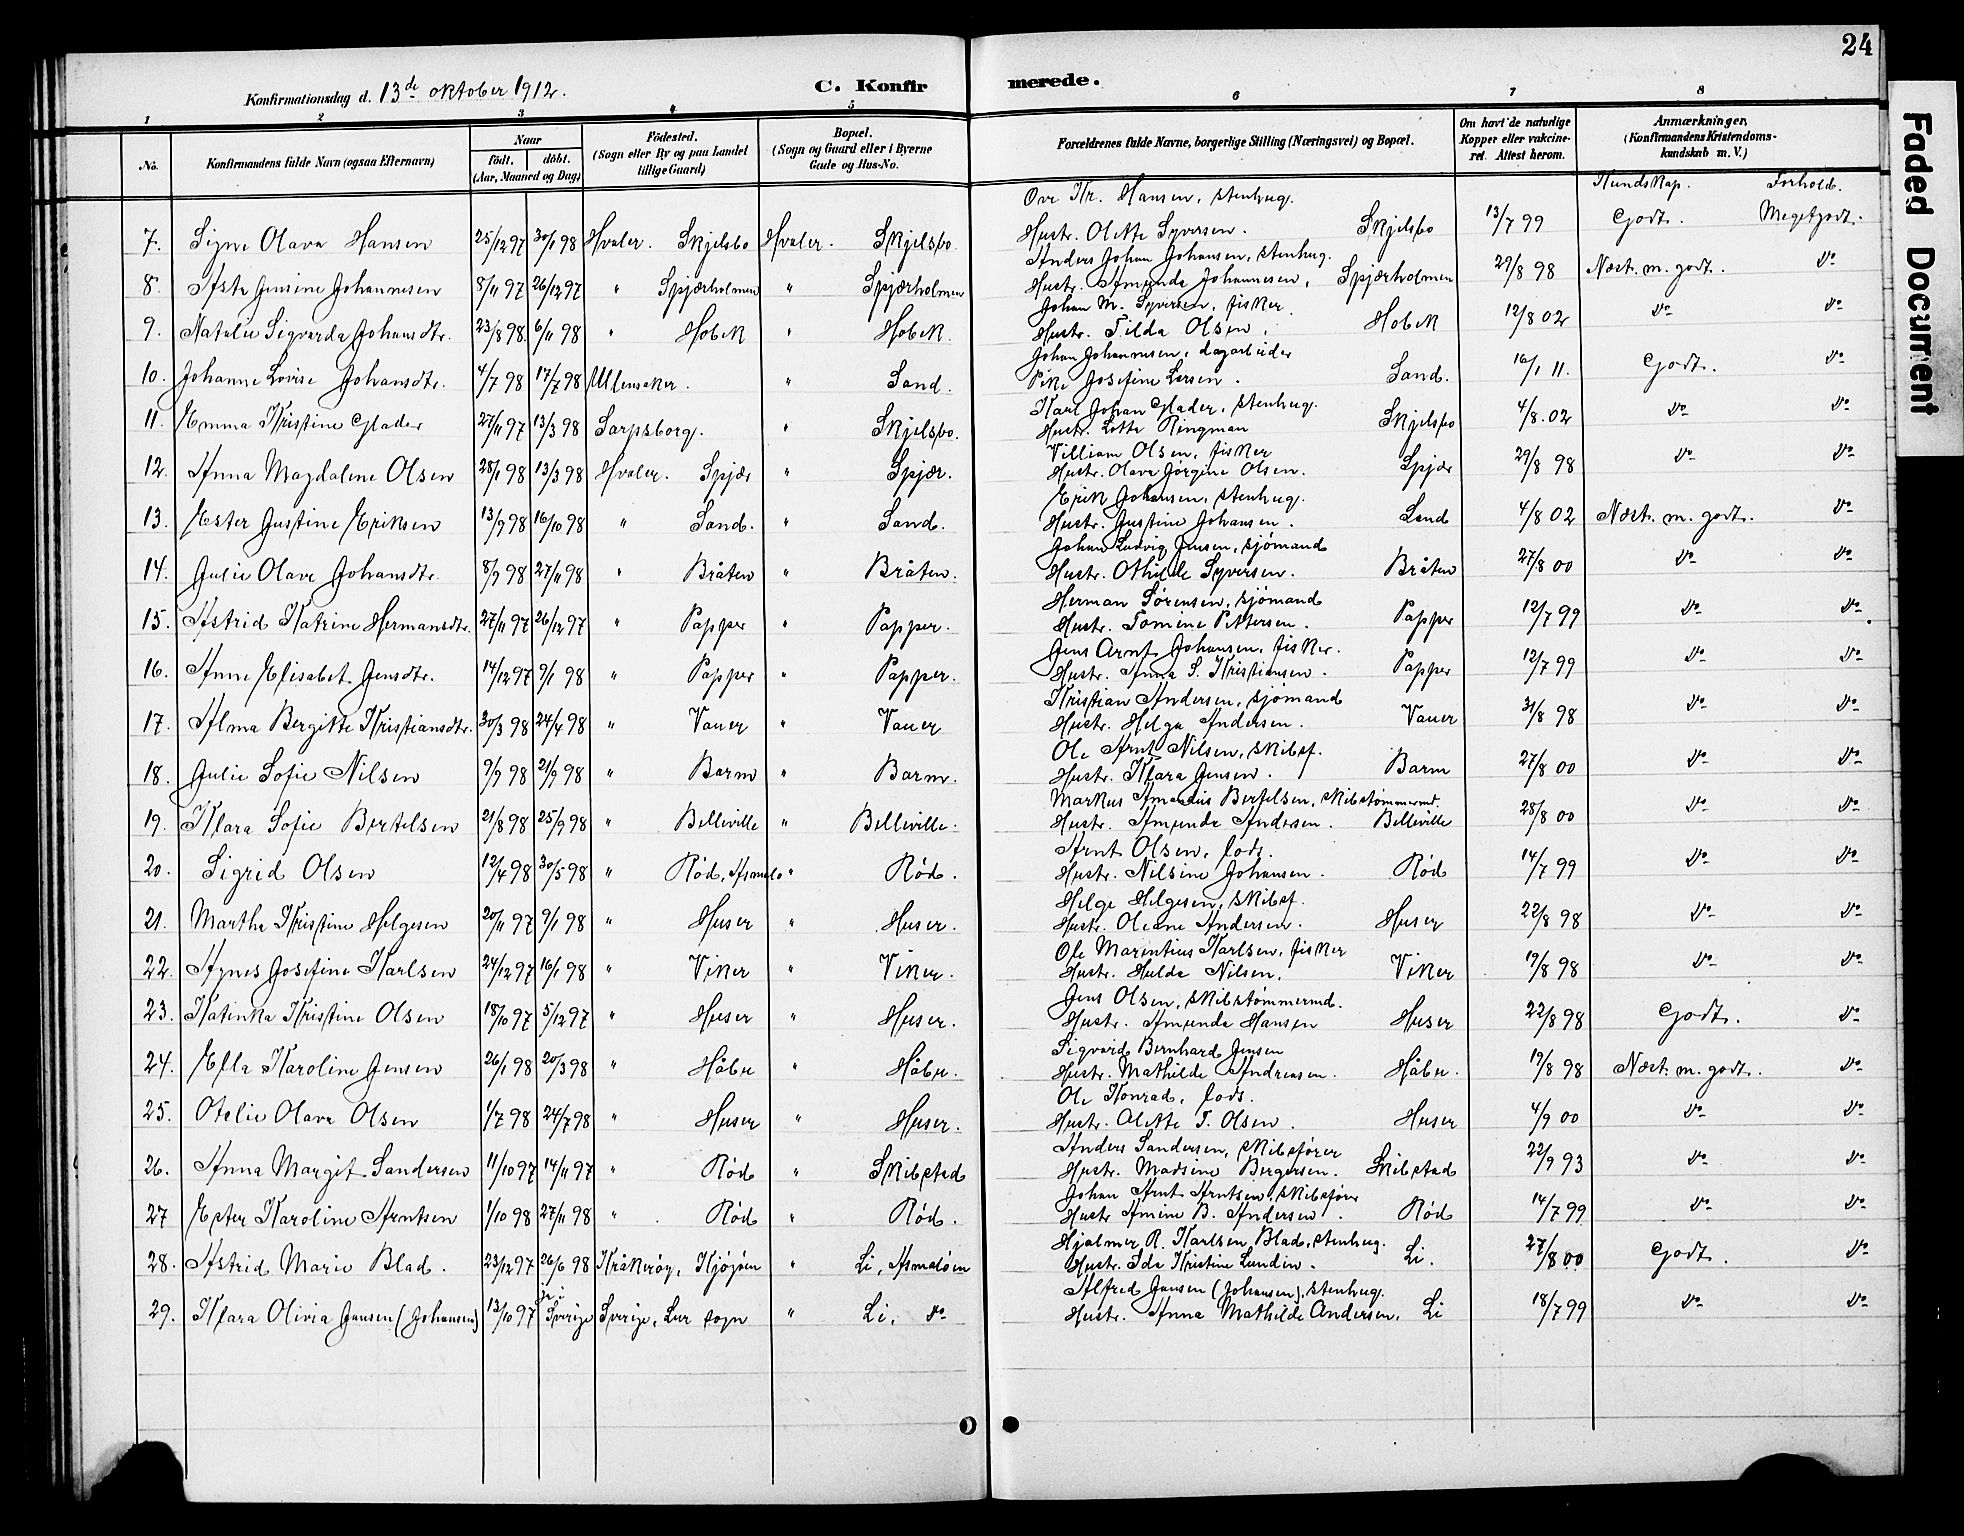 24
Faded Document
Konfirmationsdag d. 13de oktober 1912.
C. Konfirmerede.
1 2 3 4 5 6 7 8
No.
Konfirmandens fulde Navn (ogsaa Efternavn)
Naar
født. døbt.
(Aar, Maaned og Dag)
Fødested.
(Sogn eller By og paa Landet
tillige Gaard)
Bopæl.
(Sogn og Gaard eller i Byerne
Gade og Hus-No.
Forældrenes fulde Navne, borgerlige Stilling (Næringsvei) og Bopæl.
Om havt de naturlige
Kopper eller vakcine-
ret. Attest herom.
Anmærkninger.
(Konfirmandens Kristendoms-
kundskab m. V.)
Kundskap. Forhold.
Ove Kr. Hansen, stenhug.
7. Signe Olava Hansen 25/12 97 30/1 98 Hvaler. Skjelsbo Hvaler. Skjelsbo. Hustr. Olette Syversen. Skjelsbo 13/7 99 Godt. Megetgodt.
Anders Johan Johansen, stenhug.
8. Asta Jensine Johannesen 8/11 97 26/12 97 " Spjærholmen " Spjærholmen Hustr. Amunda Johannesen, Spjærholmen 29/8 98 Næst. m. godt. do
Johan M. Syversen, fisker.
9. Natalie Sigvarda Johansdtr. 23/8 98 6/11 98 " Hobek " Hobek. Hustr. Tilda Olsen, Hobek 12/8 02 do do
Johan Johannesen, dagarbeider
10. Johanne Lovise Johansdtr. 4/7 98 17/7 98 Ullensaker. " Sand. Pike Josefine Larsen. Sand. 16/1 11. Godt. do
Karl Johan Glader, stenhug.
11. Emma Kristine Glader 27/11 97 13/3 98 Sarpsborg. " Skjelsbo. Hustr. Lotte Ringman Skjelsbo 4/8. 02 do do
Villiam Olsen, fisker
12. Anna Magdalene Olsen 28/1 98 13/3 98 Hvaler. Spjær " Spjær. Hustr. Olava Jørgine Olsen. Spjær 29/8 98 do do
Erik Johansen, stenhug.
13. Ester Justine Eriksen 13/9 98 16/10 98 " Sand. " Sand. Hustr. Justine Johansen. Sand 4/8 02 Næst. m. godt. do
Johan Ludvig Jensen, sjømand
14. Julie Olave Johansdtr. 8/9 98 27/11 98 " Bråten " Bråten. Hustr. Othilde Syversen. Bråten 27/8 00 do do
Herman Sørensen, sjømand
15. Astrid Katrine Hermansdtr. 27/11 97 26/12 97 " Papper " Papper. Hustr. Tomine Pettersen. Papper 12/7 99 do do
Jens Arnt Johansen, fisker.
16. Anne Elisabet Jensdtr. 14/12 97 9/1 98 " Papper " Papper. Hustr. Anna S. Kristiansen. Papper 12/7 99 do do
Kristian Andersen, sjømand
17. Alma Bergitte Kristiansdtr. 30/3 98 24/4 98 " Vauer " Vauer Hustr. Helga Andersen. Vauer 31/8 98 do do
Ole Arnt Nilsen, skibsf.
18. Julie Sofie Nilsen 9/9 98 21/9 98 " Barm " Barm. Hustr. Klara Jensen. Barm 27/8 00 do do
Markus Amandus Bertelsen, skibstømmermd.
19. Klara Sofie Bertelsen 21/8 98 25/9 98 " Belleville " Belleville. Hustr. Amunda Andersen. Belleville 28/8 00 do do
Arnt Olsen, lods.
20. Sigrid Olsen 12/4 98 30/5 98 " Rød, Asmalo " Rød. Hustr. Nilsine Johansen. Rød 14/7 99 do do
Helge Helgesen, skibsf.
21. Martha Kristine Helgesen 20/11 97 9/1 98 " Huser " Huser. Hustr. Oleane Andersen. Huser 22/8 98 do do
Ole Marentius Karlsen, fisker
22. Agnes Josefine Karlsen 24/12 97 16/1 98 " Viker " Viker. Hustr. Hulda Nilsen. Viker 19/8 98 do do
Jens Olsen, skibstømmermd.
23. Katinka Kristine Olsen 18/10 97 5/12 97 " Huser " Huser. Hustr. Amunda Hansen Huser 22/8 98 Godt. do
Sigvard Bernhard Jensen
24. Ella Karoline Jensen 26/1 98 20/3 98 " Håbu " Håbu. Hustr. Mathilde Andreasen. Håbu. 19/8 98 Næst. m. godt. do
Ole Konrad, lods.
25. Otelie Olava Olsen 1/7 98 24/7 98 " Huser " Huser. Hustr. Alette T. Olsen. Huser 4/9 00 do do
Anders Sandersen, skibsfører
26. Anna Margit Sandersen 11/10 97 14/11 97 " Rød " Skibstad Hustr. Madsine Bergersen. Skibstad 22/9 93 do do
Johan Arnt Arntsen, skibsfører
27 Ester Karoline Arntsen 1/10 98 27/11 98 " Rød " Rød. Hustr Amine B. Andersen. Rød 14/7 99 do do
Hjalmer R. Karlsen Blad, stenhug.
28. Astrid Marie Blad. 23/12 97 26/6 98 Kråkerøy, Kjøjøen " Li, Asmaløen Hustr. Ida Kristine Lundin. Li. 27/8 00 Godt. do
Alfred Jansen (Johansen), stenhug.
29. Klara Olivia Jansen (Johansen) 13/10 97 Sverige Sverige, Lur sogn " Li, do Hustr. Anna Mathilde Andersen, Li 18/7 99 do do